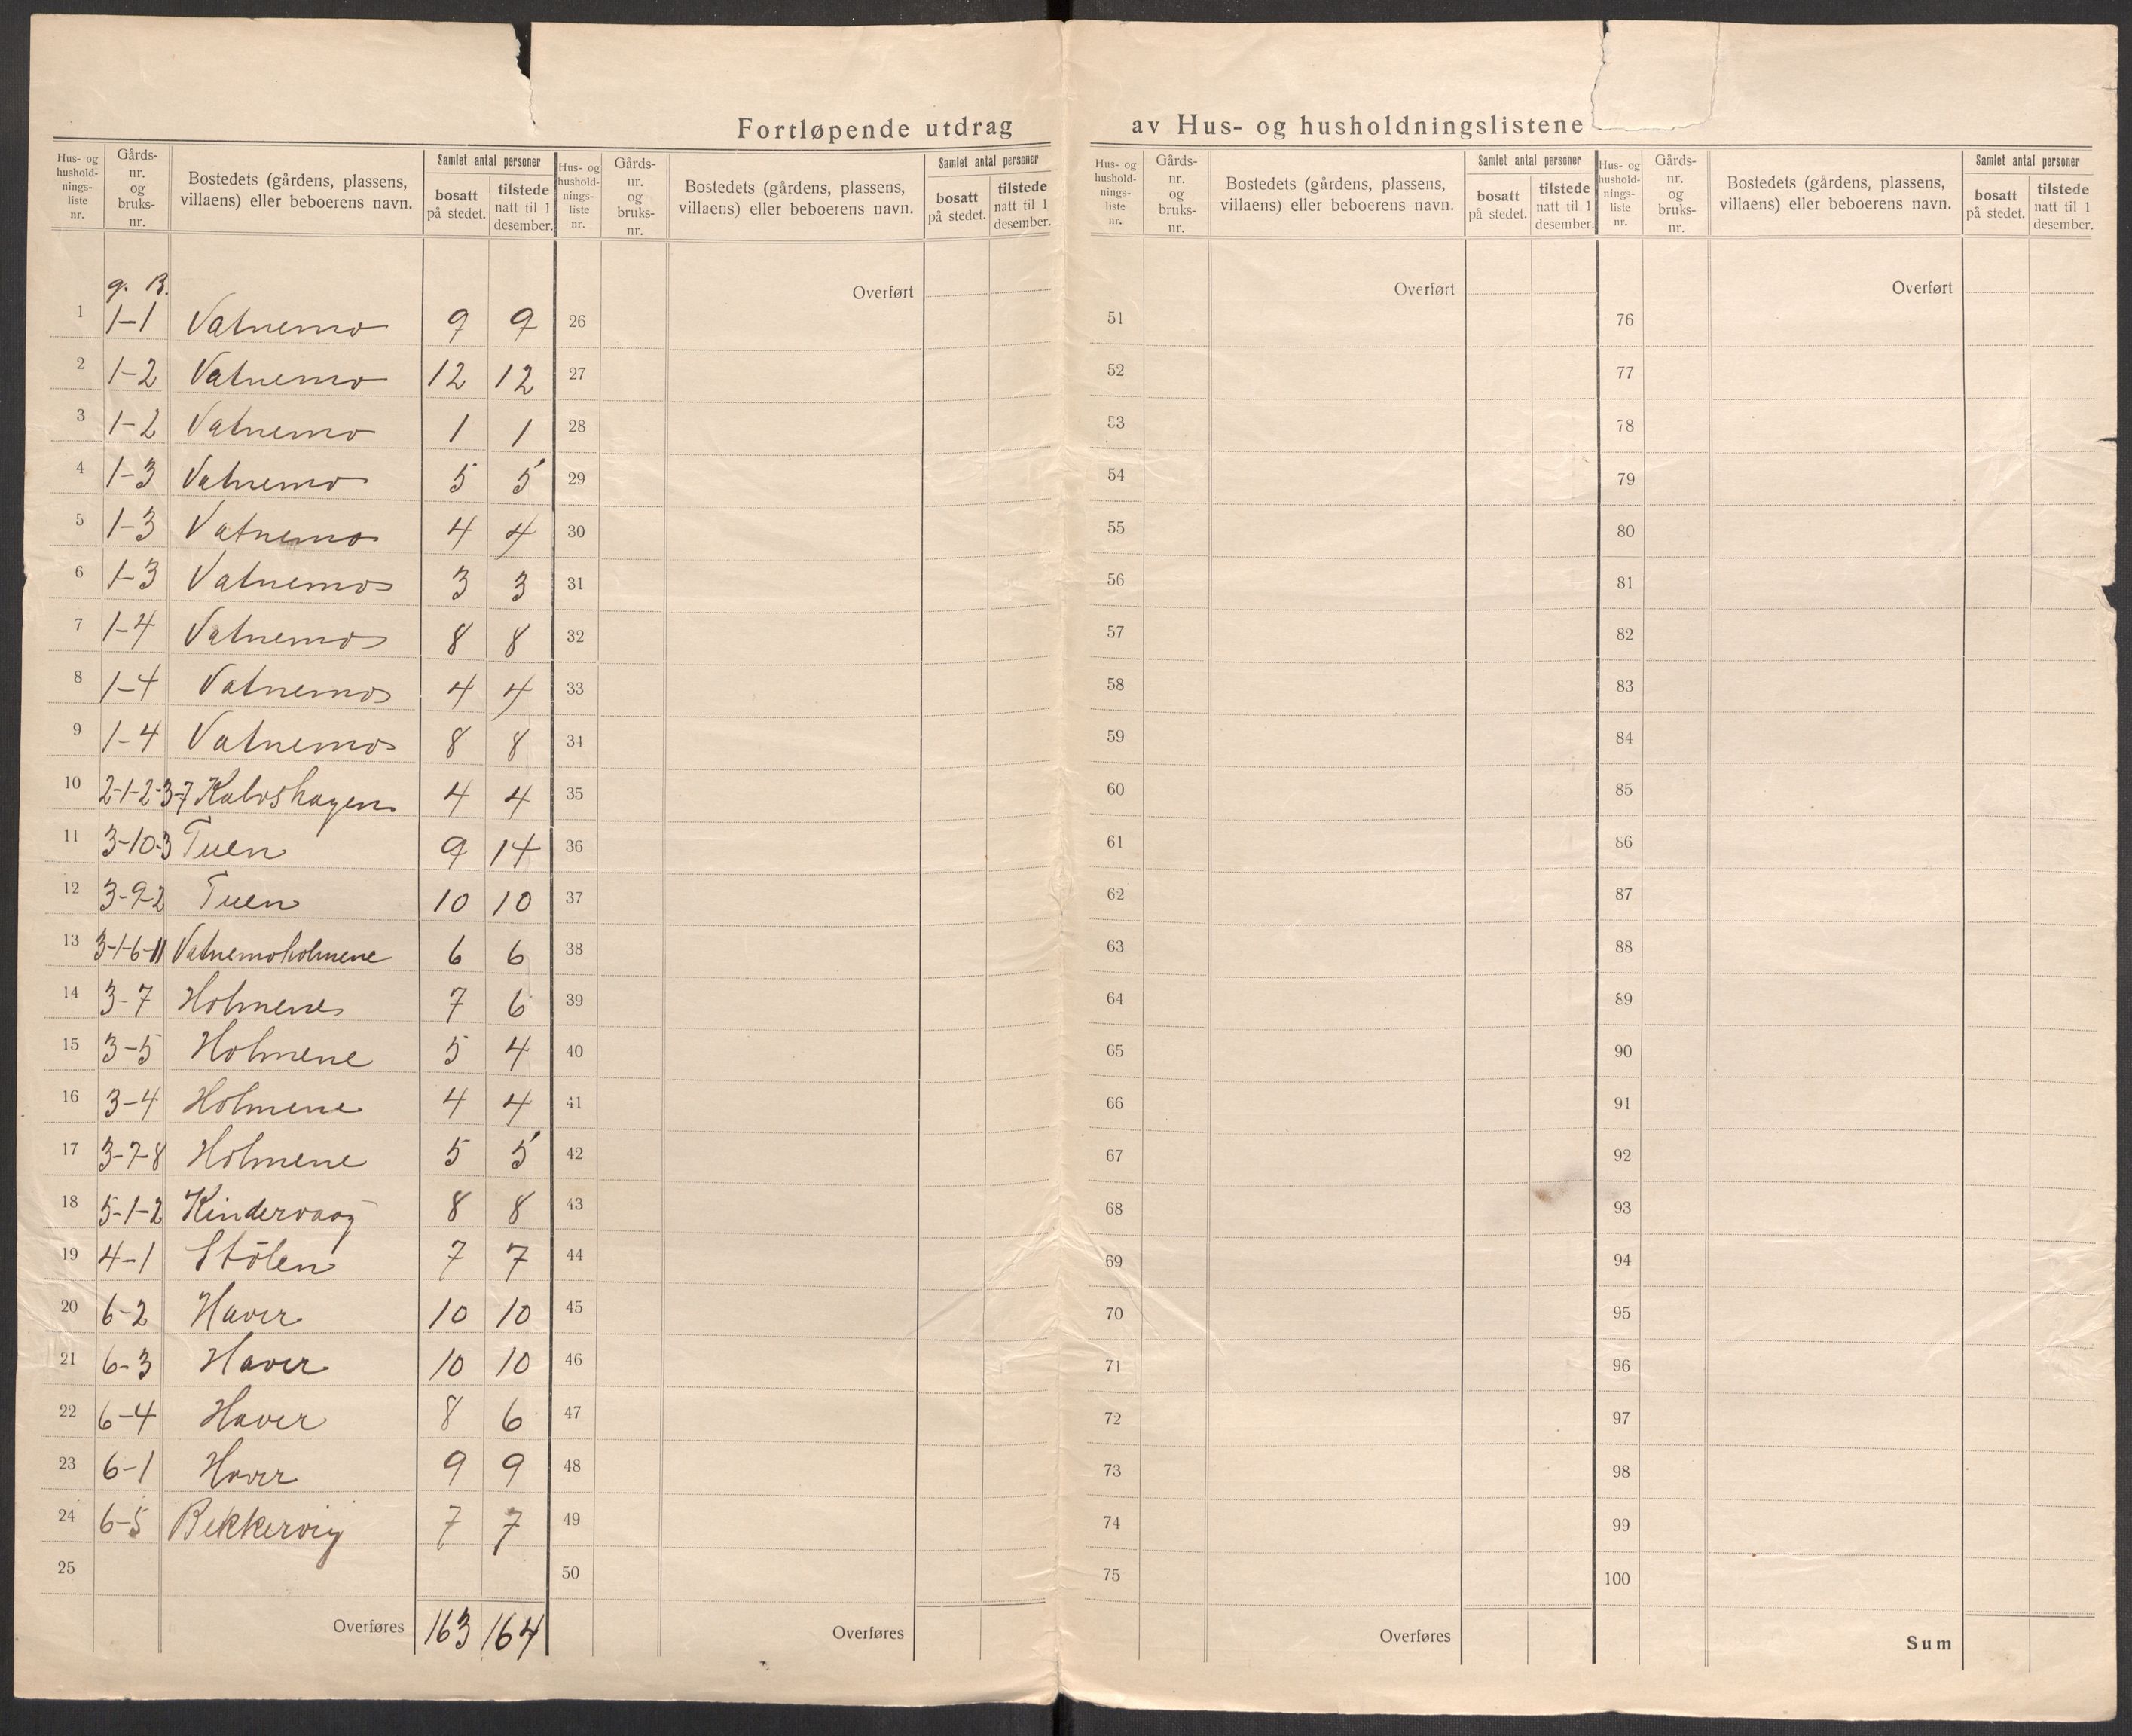 Fortløpende utdrag av Hus- og husholdningslistene
Hus- og hushold- nings- liste nr. Gårds- nr. og bruks- nr. Bostedets (gårdens, plassens, villaens) eller beboerens navn. Samlet antal personer bosatt på stedet. tilstede natt til 1 desember.
Hus- og hushold- nings- liste nr. Gårds- nr. og bruks- nr. Bostedets (gårdens, plassens, villaens) eller beboerens navn. Samlet antal personer bosatt på stedet. tilstede natt til 1 desember.
Hus- og hushold- nings- liste nr. Gårds- nr. og bruks- nr. Bostedets (gårdens, plassens, villaens) eller beboerens navn. Samlet antal personer bosatt på stedet. tilstede natt til 1 desember.
Hus- og hushold- nings- liste nr. Gårds- nr. og bruks- nr. Bostedets (gårdens, plassens, villaens) eller beboerens navn. Samlet antal personer bosatt på stedet. tilstede natt til 1 desember.
g. B. Overført Overført Overført
1 1-1 Vatnemo 9 9 26 51 76
2 1-2 Vatnemo 12 12 27 52 77
3 1-2 Vatnemo 1 1 28 53 78
4 1-3 Vatnemo 5 5 29 54 79
5 1-3 Vatnemo 4 4 30 55 80
6 1-3 Vatnemo 3 3 31 56 81
7 1-4 Vatnemo 8 8 32 57 82
8 1-4 Vatnemo 4 4 33 58 83
9 1-4 Vatnemo 8 8 34 59 84
10 2-1-2-3-7 Kalvshagen 4 4 35 60 85
11 3-10-3 Tuen 9 14 36 61 86
12 3-9-2 Tuen 10 10 37 62 87
13 3-1-6-11 Vatnemoholmene 6 6 38 63 88
14 3-7 Holmene 7 6 39 64 89
15 3-5 Holmene 5 4 40 65 90
16 3-4 Holmene 4 4 41 66 91
17 3-7-8 Holmene 5 5 42 67 92
18 5-1-2 Kindervaag 8 8 43 68 93
19 4-1 Stölen 7 7 44 69 94
20 6-2 Haver 10 10 45 70 95
21 6-3 Haver 10 10 46 71 96
22 6-4 Haver 8 6 47 72 97
23 6-1 Haver 9 9 48 73 98
24 6-5 Bekkervig 7 7 49 74 99
25 50 75 100
Overføres 163 164 Overføres Overføres Sum